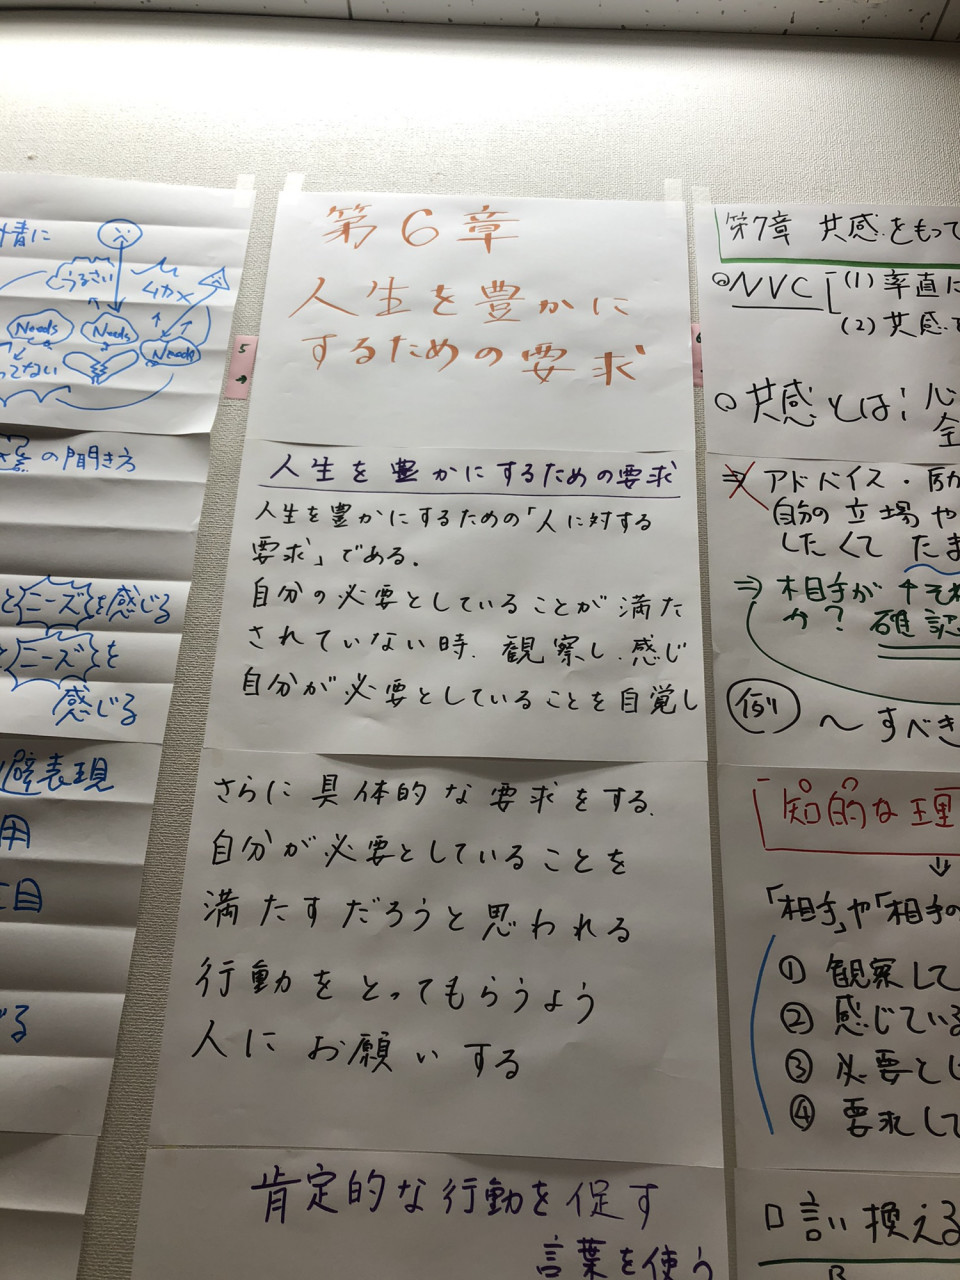 情に
うるさい
ムカッ
Needs
Needs
Needs
ってない
の聞き方
と ニーズ を感じる
ニーズ を
感じる
避表現
用
目
る
5
→
第6章
人生を豊かに
するための要求
人生を豊かにするための要求
人生を豊かにするための「人に対する
要求」である.
自分の必要としていることが満た
されていない時、観察し、感じ
自分が必要としていることを自覚し
さらに具体的な要求をする.
自分が必要としていることを
満たすだろうと思われる
行動をとってもらうよう
人にお願いする
肯定的な行動を促す
言葉を使う
第7章 共感をもって
NVC
(1) 率直に
(2) 共感
共感とは:心
全
⇒ アドバイス・励
自分の立場や
したくて たま
⇒ 相手が それ
か? 確認
例 〜すべき
知的な理
↓
「相手」や「相手の
① 観察して
② 感じている
③ 必要とし
④ 要求して
口 言い換える